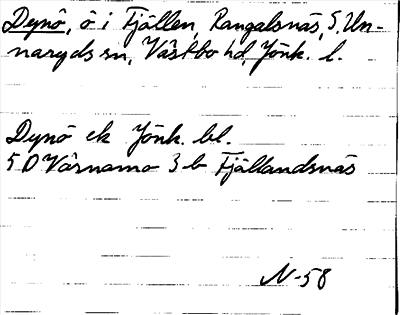 Dynö, ö i Fjällen, Rangalsnäs, S. Un-
naryds sn, Västbo hd, Jönk. l.
Dynö ek Jönk. bl.
5 D Värnamo 3 b Fjällandsnäs
N-58